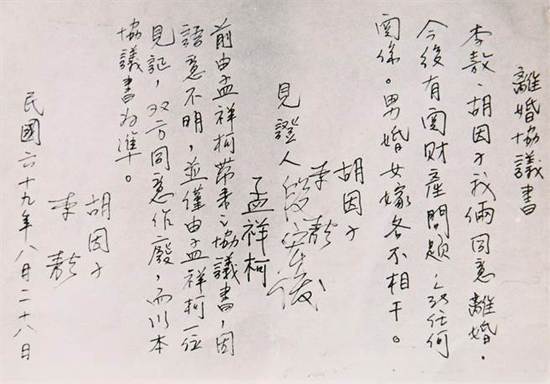 離婚協議書
李敖、胡因子我倆同意離婚,
今後有関財產問題,任何
関係。男婚女嫁各不相干。
胡因子
李敖
見證人 段宏俊
孟祥柯
前由孟祥柯帶來之協議書,因
語意不明,並僅由孟祥柯一位
見証,双方同意作廢,而以本
協議書为準。
胡因子
李敖
民國六十九年八月二十八日